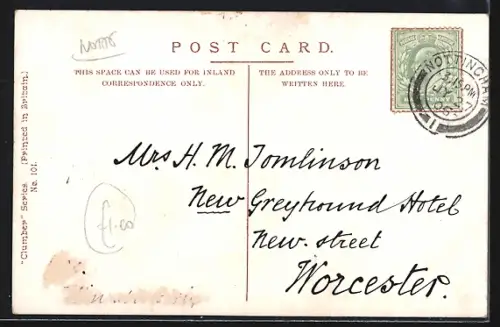 Notts
POST CARD.
THIS SPACE CAN BE USED FOR INLAND
CORRESPONDENCE ONLY.
THE ADDRESS ONLY TO BE
WRITTEN HERE.
NOTTINGHAM
"Clumber" Series. (Printed in Britain.)
No. 101.
Mrs H. M. Tomlinson
New Greyhound Hotel
New-street
Worcester.
£1.00